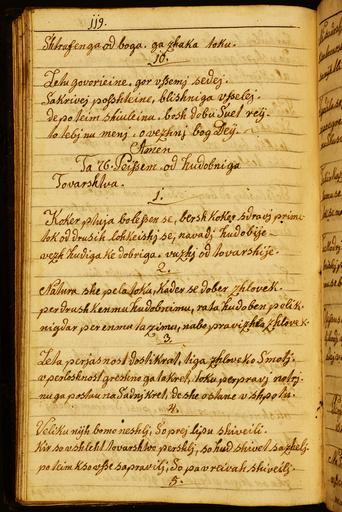 119.
Shtrafenga od boga. ga zhaka toku.
10.
Letu govorieine, gor vssemj sedej.
Sakrivej posshteine, blishniga vsselej.
de poteim skuleina. bosh dobu Svet reij
to lebj nu menj. o vezhnj bog Deij.
Amen
Ta 76. Peissem. od hudobniga
Tovarshtva.
1.
Koker ptuja bolesen se, bersh koker sdravj prime
tok od drusih lohkeishj se, navadj hudobije
vezh hudiga ke dobriga. vuzhj od tovarshije.
2.
Natura she pela toka, kader se dober zhlovek.
per drushkenmu hudobnimu, rata hudoben polik
nigdar per enmu tazimu, nabo pravizhen zhlovek.
3.
Leta perjasnost dostikrat, tiga zhloveka Smotj.
v peoloslnost greshno ga takrat, toku perpravj
nu ga postau na Sadnj kret, de she ostane v shpotu.
4.
Veliku nijh bomo neshlj, So prej lipu shiveili.
Kir so v shleht tovarshtvo pershlj, so hud shivet sazhelj.
po teim kso vsse sapravilj, So pa v reivah shiveilj.
5.